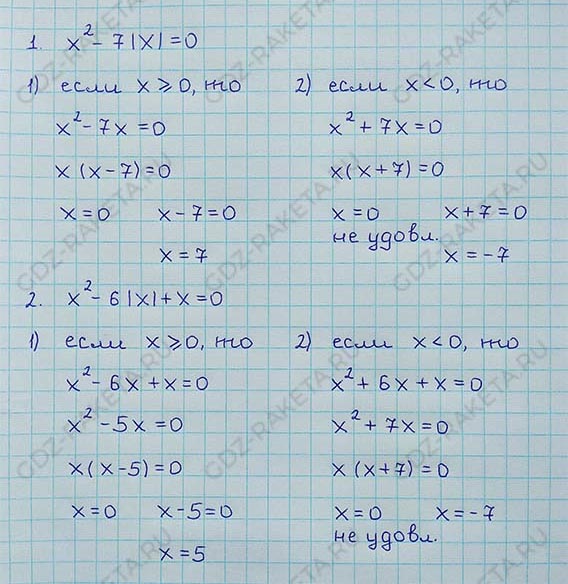 1. x² - 7|x| = 0
1) если x ⩾ 0, то
x² - 7x = 0
x (x - 7) = 0
x = 0 x - 7 = 0
x = 7
2) если x < 0, то
x² + 7x = 0
x(x + 7) = 0
x = 0 x + 7 = 0
не удовл.
x = -7
2. x² - 6|x| + x = 0
1) если x ⩾ 0, то
x² - 6x + x = 0
x² - 5x = 0
x(x - 5) = 0
x = 0 x - 5 = 0
x = 5
2) если x < 0, то
x² + 6x + x = 0
x² + 7x = 0
x (x + 7) = 0
x = 0 x = -7
не удовл.
GDZ-RAKETA.RU